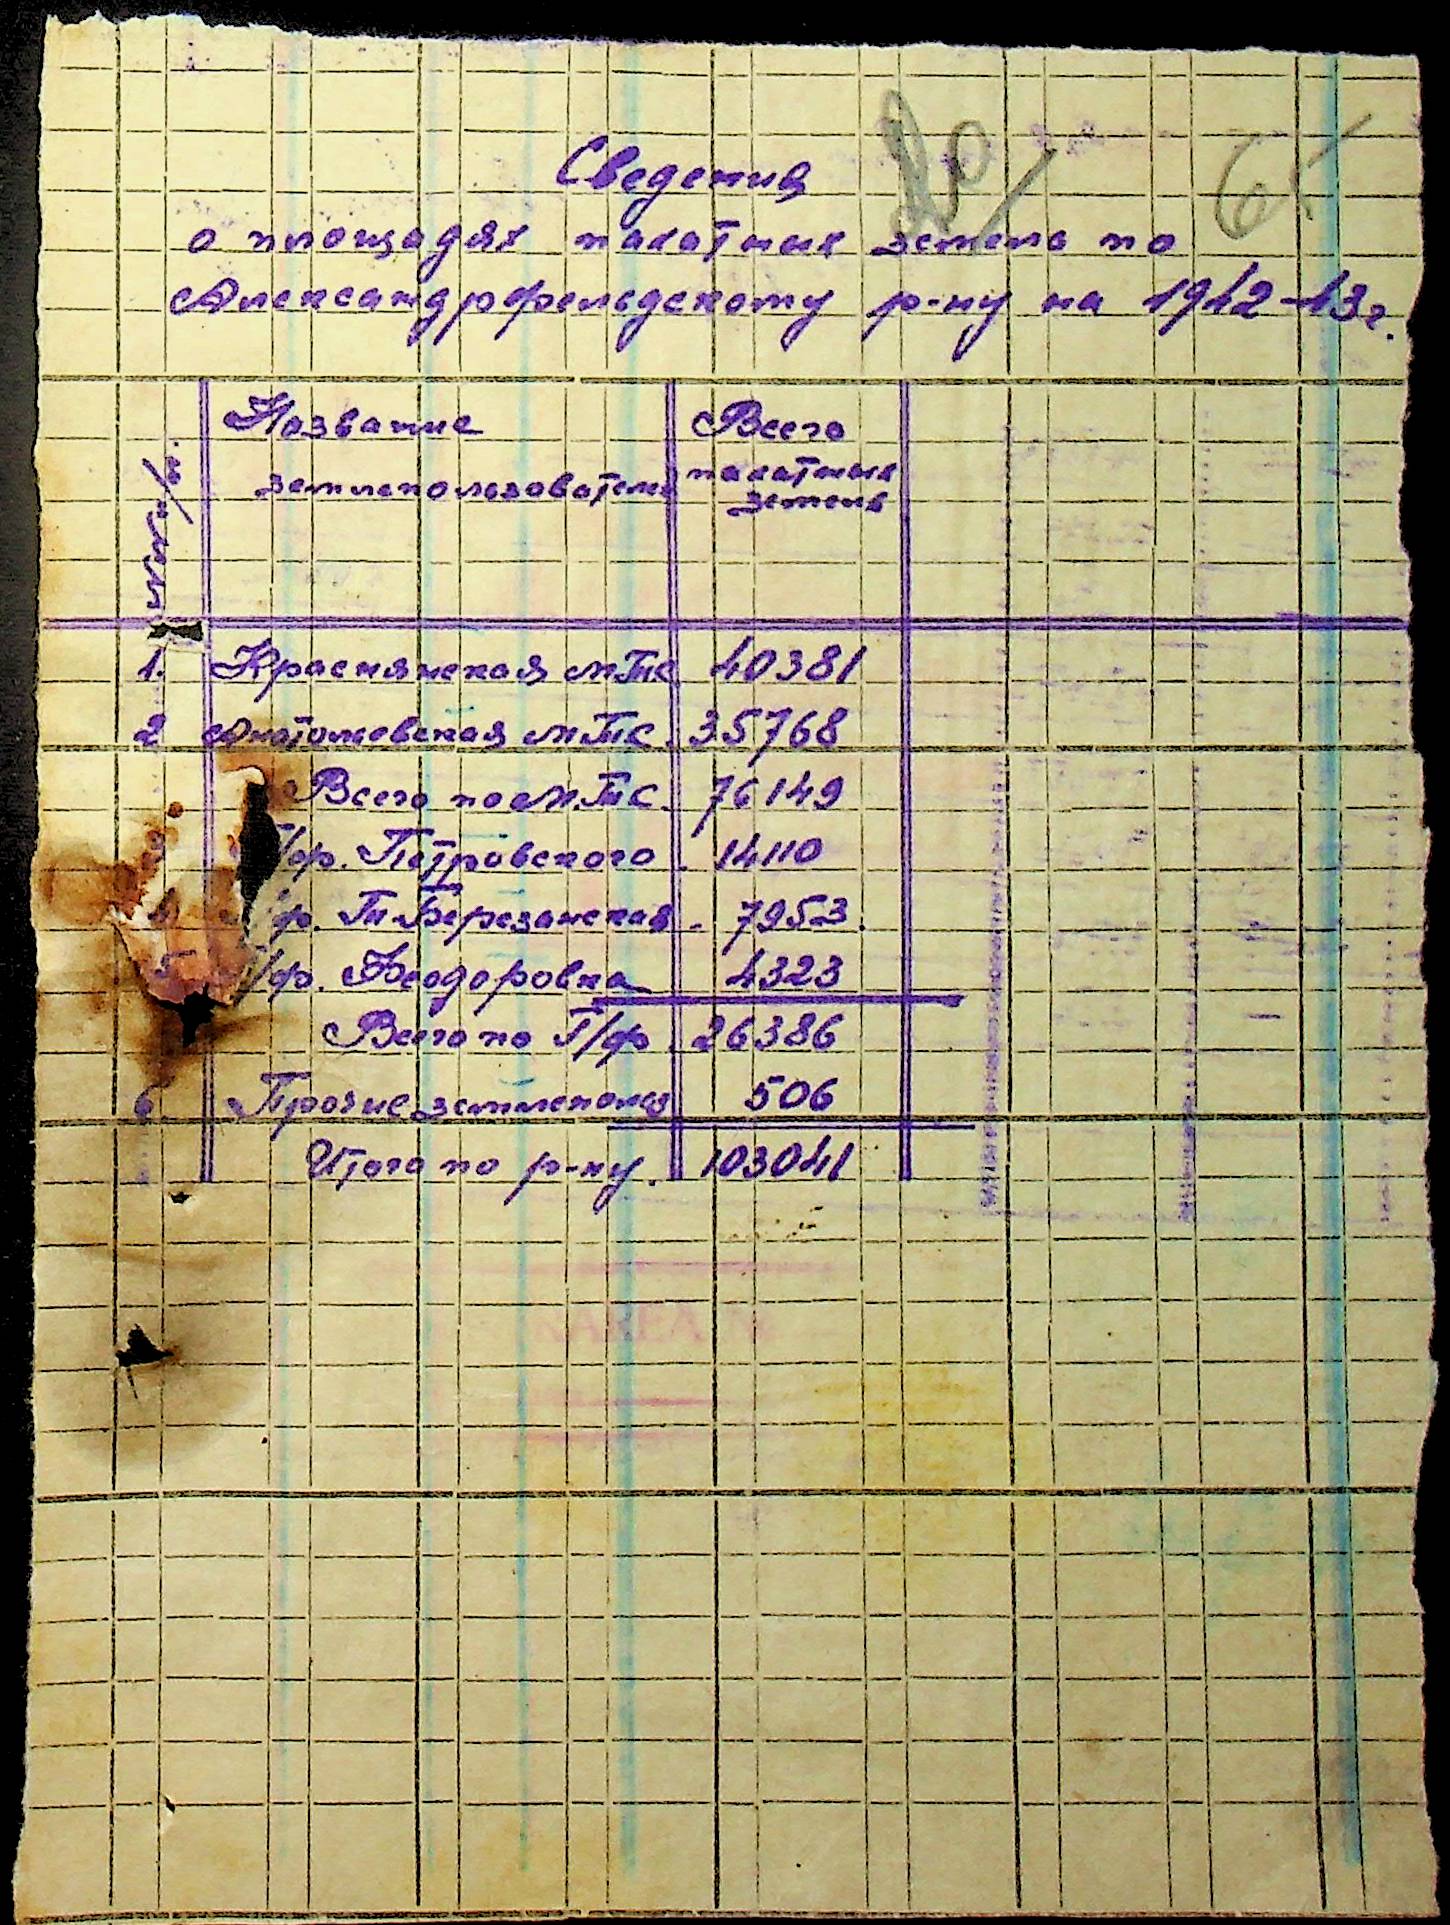 Сведения
о площадях пахатных земель по
Александрфельдскому р-ну на 1942-43г.
№№ п/п. Название землепользователей Всего пахатных земель
1. Краснянская МТС 40381
2 Анатольевская МТС. 35768
Всего по МТС. 76149
/ф. Петровского. 14110
4 /ф. Тил-Березанская. 7953.
5 Г/ф. Феодоровка 4323
Всего по Г/ф. 26386
6 Прочие землепольз 506
Итого по р-ну. 103041